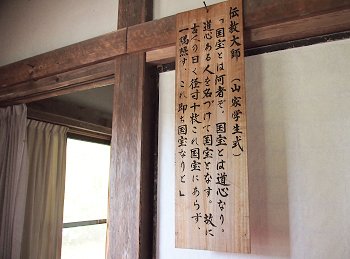 伝教大師（山家学生式）
「国宝とは何者ぞ、国宝とは道心なり。
道心ある人を名づけて国宝となす。故に
古人の曰く径寸十枚これ国宝にあらず、
一隅を照す、これ即ち国宝なりと」